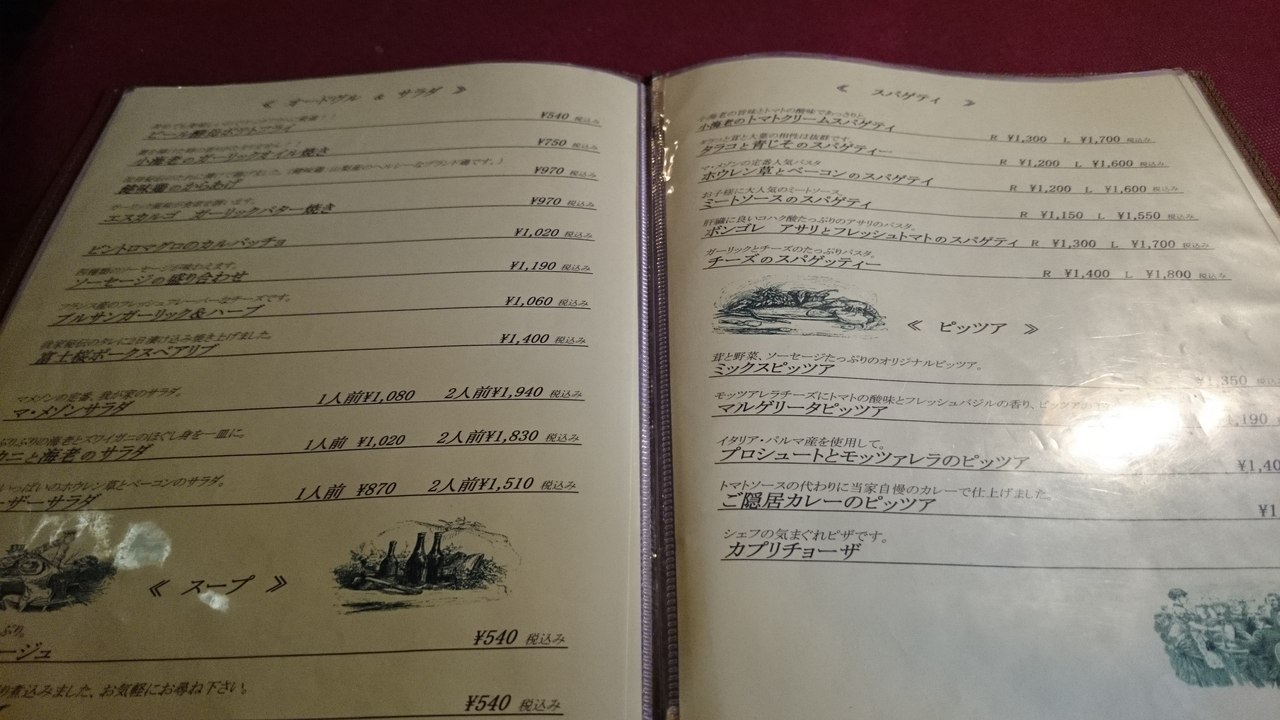 《 オードヴル & サラダ 》
¥540 税込み
小海老のガーリックオイル焼き ¥750 税込み
健味鶏のからあげ ¥970 税込み
エスカルゴ ガーリックバター焼き ¥970 税込み
ビントロマグロのカルパッチョ ¥1,020 税込み
ソーセージの盛り合わせ ¥1,190 税込み
フランス産のフレッシュフレーバーなチーズです。
ブルサンガーリック&ハーブ ¥1,060 税込み
富士桜ポークスペアリブ ¥1,400 税込み
マメゾンの定番、我が家のサラダ。
マ・メゾンサラダ 1人前¥1,080 2人前¥1,940 税込み
ぷりぷりの海老とズワイガニのほぐし身を一皿に。
カニと海老のサラダ 1人前 ¥1,020 2人前¥1,830 税込み
いっぱいのホウレン草とベーコンのサラダ。
ーザーサラダ 1人前 ¥870 2人前¥1,510 税込み
《 スープ 》
ぷり。
ージュ ¥540 税込み
煮込みました、お気軽にお尋ね下さい。
¥540 税込み
《 スパゲティ 》
小海老の旨味とトマトの酸味であっさりと。
小海老のトマトクリームスパゲティ R ¥1,300 L ¥1,700 税込み
タラコと青じそのスパゲティー R ¥1,200 L ¥1,600 税込み
マ・メゾンの定番人気パスタ
ホウレン草とベーコンのスパゲティ R ¥1,200 L ¥1,600 税込み
お子様に大人気のミートソース。
ミートソースのスパゲティ R ¥1,150 L ¥1,550 税込み
肝臓に良いコハク酸たっぷりのアサリのパスタ。
ボンゴレ アサリとフレッシュトマトのスパゲティ R ¥1,300 L ¥1,700 税込み
ガーリックとチーズのたっぷりパスタ。
チーズのスパゲッティー R ¥1,400 L ¥1,800 税込み
《 ピッツア 》
茸と野菜、ソーセージたっぷりのオリジナルピッツア。
ミックスピッツア ¥1,350 税込
モッツアレラチーズにトマトの酸味とフレッシュバジルの香り、ピッツア
マルゲリータピッツア ,190
イタリア・パルマ産を使用して。
プロシュートとモッツァレラのピッツア ¥1,40
トマトソースの代わりに当家自慢のカレーで仕上げました。
ご隠居カレーのピッツア ¥1
シェフの気まぐれピザです。
カプリチョーザ